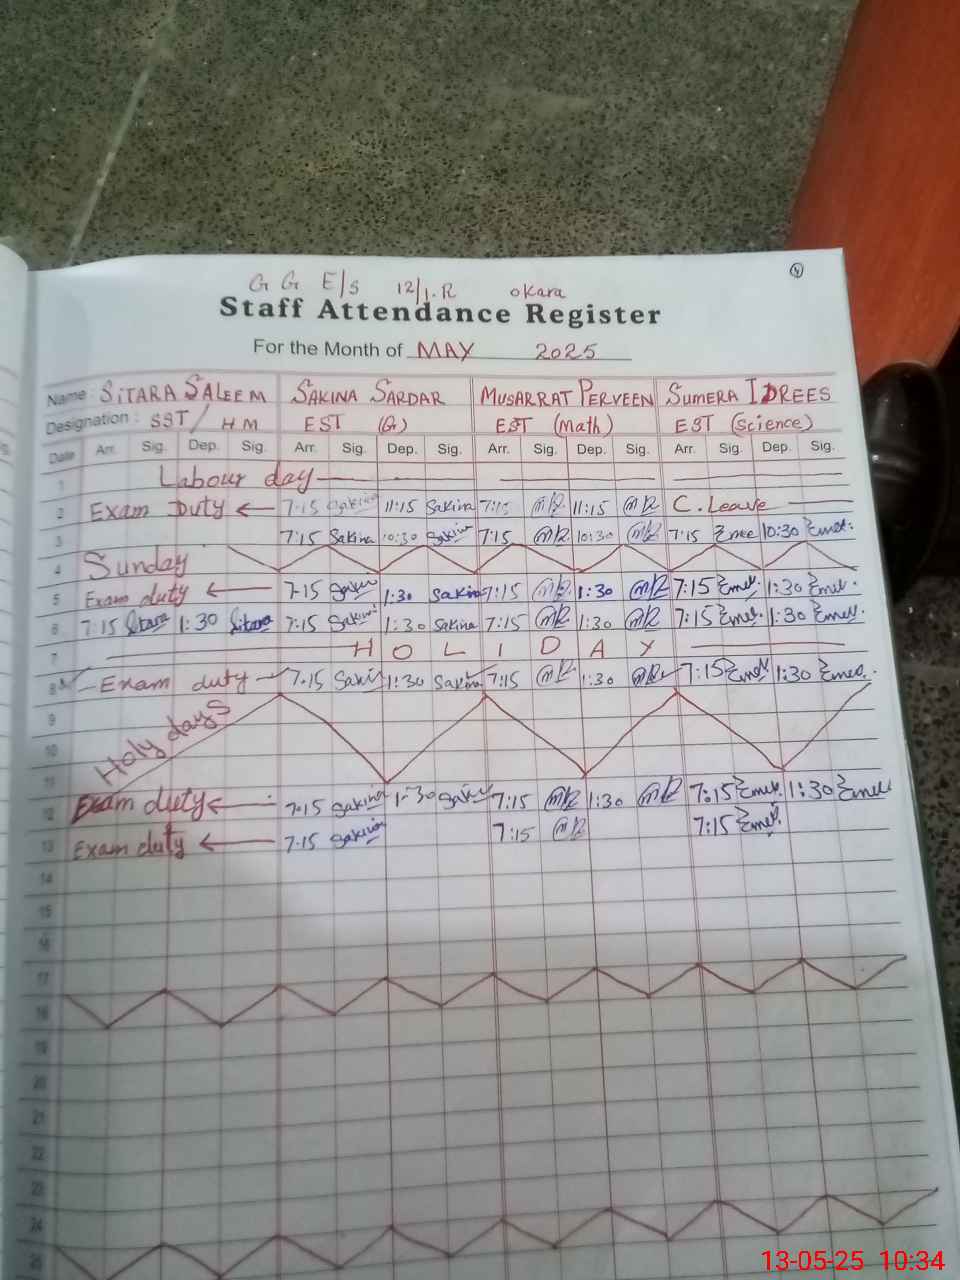 G G E/S 12/1.R okara
Staff Attendance Register
For the Month of MAY 2025
Name : SiTARA SALEEM SAKINA SARDAR MUSARRAT PERVEEN SUMERA IDREES
Designation : SST / HM EST (G) EST (Math) EST (science)
Date Arr. Sig. Dep. Sig. Arr. Sig. Dep. Sig. Arr. Sig. Dep. Sig. Arr. Sig. Dep. Sig.
1 Labour day
2 Exam Duty 7-15 Sakina 11:15 Sakina 7:15 11:15 C. Leave
3 7:15 Sakina 10:30 Sakina 7:15 10:30 7:15 10:30
4 Sunday
5 Exam duty 7-15 Sakina 1:30 Sakina 7:15 1:30 7:15 1:30
6 7:15 Sitara 1:30 Sitara 7:15 Sakina 1:30 Sakina 7:15 1:30 7:15 1:30
7 H O L I D A Y
8 Exam duty 7.15 Sakina 1:30 Sakina 7:15 1:30 7:15 1:30
9
Holy days
10
11
12 Exam duty 7.15 Sakina 1:30 Sakina 7:15 1:30 7:15 1:30
13 Exam duty 7.15 Sakina 7:15 7:15
14
15
16
17
18
19
20
21
22
23
24
25
13-05-25 10:34